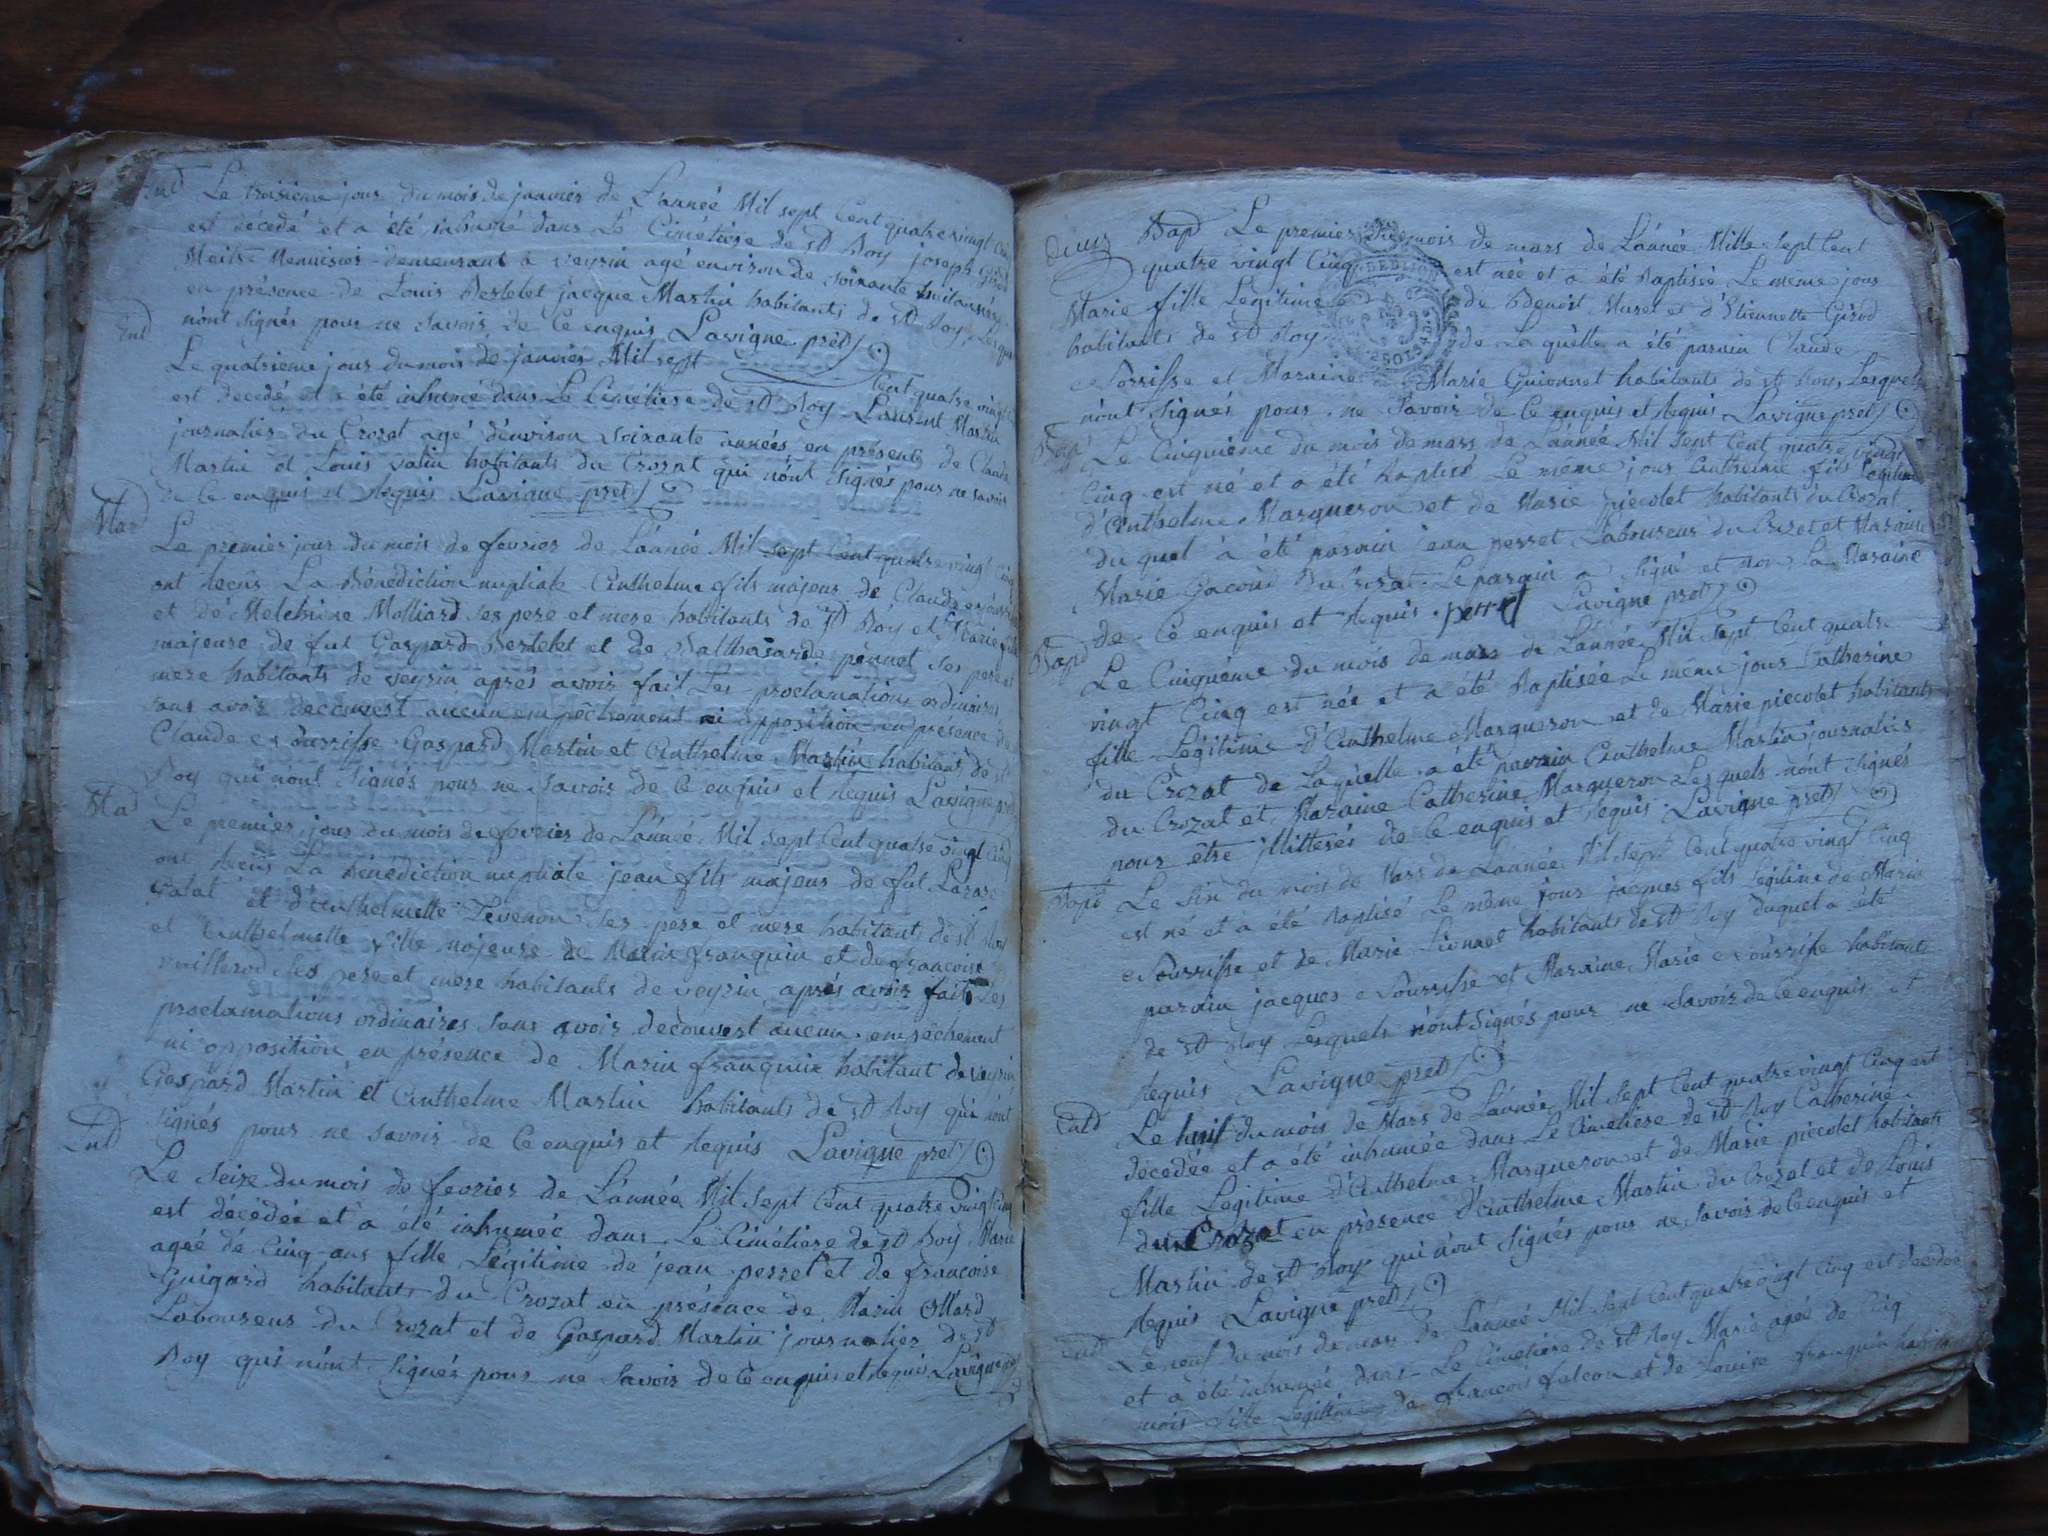 Ent Le troisieme jour du mois de janvier de L'année Mil sept Cent quatre vingt Cinq
est décedé et a été inhumé dans Le Cimétiere de st Roy joseph
Meitre Menuisier demeurant a veyrin agé environ de soixante huit années
en présence de Louis Bertelet jacque Martin habitants de st Roy, Lesquels
n'ont signés pour ne savoir de Ce enquis Lavigne pret
Ent
Le quatrieme jour du mois de janvier Mil sept Cent quatre vingt
est decedé et a été inhumé dans Le Cimétiere de st Roy Laurent Martin
journalier du Crozat agé d'environ soixante années, en présente de Claude
Martin et Louis valin habitants du Crozat qui n'ont signés pour ne savoir
de Ce enquis et Requis Lavigne pret
Mar
Le premier jour du mois de fevrier de L'année Mil sept Cent quatre vingt Cinq
ont Reçus La Bénédiction nuptiale Anthelme fils majeur de Claude
et de Melchiore Molliard ses pere et mere habitants de st Roy et Marie fille
majeure de fut Gaspard Bertelet et de Balthasarde pennet ses pere et
mere habitants de veyrin aprés avoir fait Les proclamations ordinaires
sans avoir decouvert aucun empêchement ni opposition en présence de
Claude Gaspard Martin et Anthelme Martin habitants de st
Roy qui n'ont signés pour ne savoir de Ce enquis et Réquis Lavigne pret
Mar
Le premier jour du mois de fevrier de L'année Mil sept Cent quatre vingt Cinq
ont Reçus La Bénédiction nuptiale jean fils majeur de fut Lazare
valat et d'Anthelmette Tevenon ses pere et mere habitants de st Roy
et Anthelmette fille majeure de Marin franquin et de francoise
ses pere et mere habitants de veyrin aprés avoir fait Les
proclamations ordinaires sans avoir decouvert aucun empêchement
ni opposition en présence de Marin franquin habitant de veyrin
Gaspard Martin et Anthelme Martin habitants de st Roy qui n'ont
signés pour ne savoir de Ce enquis et Requis Lavigne pret
Ent
Le seize du mois de fevrier de L'année Mil sept Cent quatre vingt Cinq
est décédée et a été inhumée dans Le Ciméttiere de st Roy Marie
agée de Cinq ans fille Légitime de jean perret et de francoise
Guigard habitants du Crozat en présence de Marin Ollard
Laboureur du Crozat et de Gaspard Martin journalier de st
Roy qui n'ont signés pour ne savoir de Ce enquis et Requis Lavigne pret
deux
Bapt Le premier du mois de mars de L'année Mille sept Cent
quatre vingt Cinq est née et a été Baptisée Le meme jour
Marie fille Légitime de Benoit Muret et d'Etiennette Girod
habitants de st Roy de Laquelle a été parain Claude
et Maraine Marie Guionnet habitants de st Roy Lesquels
n'ont signés pour ne savoir de Ce enquis et Requis Lavigne pret
Bapt Le Cinquiéme du mois de mars de L'année Mil sept Cent quatre vingt
Cinq est né et a été Baptisé Le même jour Anthelme fils Legitime
d'Anthelme Marqueron et de Marie piecolet habitants du Crozat
du quel à été parain jean perret Laboureur du Crozat et Maraine
Marie jacoud du Crozat Le parain a signé et non La Maraine
de Ce enquis et Requis perret Lavigne pret
Bapt
Le Cinquiéme du mois de mars de L'année Mil sept Cent quatre
vingt Cinq est née et a été Baptisée Le même jour Catherine
fille Legitime d'Anthelme Marqueron et de Marie piecolet habitants
du Crozat de Laquelle a été parain Anthelme Martin journalier
du Crozat et Maraine Catherine Marqueron Lesquels n'ont signés
pour être illitterés de Ce enquis et Requis Lavigne pret
Bapt Le six du mois de Mars de L'année Mil sept Cent quatre vingt Cinq
est né et à été Baptisé Le même jour jacques fils Légitime de Marin
et de Marie habitants de st Roy duquel a été
parain jacques et Maraine Marie habitants
de st Roy Lesquels n'ont signés pour ne savoir de Ce enquis et
Requis Lavigne pret
Ent
Le huit du mois de Mars de L'année Mil sept Cent quatre vingt Cinq est
décedée et a été inhumée dans Le Cimetiere de st Roy Catherine
fille Legitime d'Anthelme Marqueron et de Marie piecolet habitants
du Crozat en présence d'Anthelme Martin du Crozat et de Louis
Martin de st Roy qui n'ont signés pour ne savoir de Ce enquis et
Requis Lavigne pret
Ent
Le neuf du mois de mars de L'année Mil sept Cent quatre vingt Cinq est decedée
et a été inhumée dans Le Cimetiere de st Roy Marie agée de Cinq
mois fille Legitime de francois falcon et de Louise franquin habitants